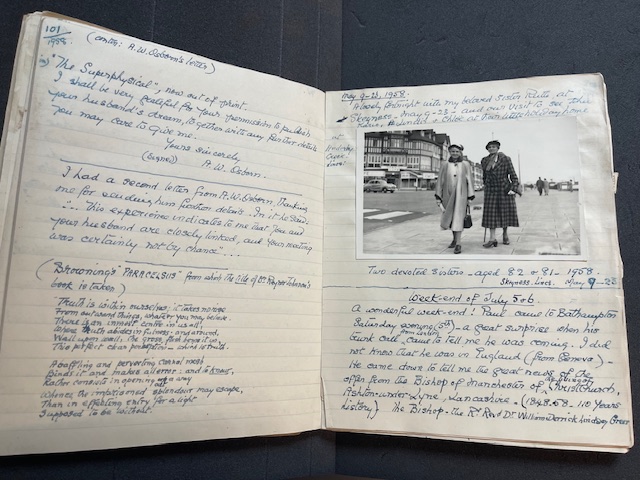 101
1958.
(contd: A.W. Osborn's letter)
"The Superphysical", now out of print.
I shall be very grateful for your permission to publish
your husband's dream, together with any further details
you may care to give me.
Yours sincerely
(signed) A.W. Osborn.
I had a second letter from A.W. Osborn, thanking
me for sending him further details. In it he said:
"... This experience indicates to me that you and
your husband are closely linked, and your meeting
was certainly not by chance"...
(Browning's "PARACELSUS" from which the title of Dr Raynor Johnson's
book is taken)
Truth is within ourselves; it takes no rise
From outward things, whate'er you may believe.
There is an inmost centre in us all,
Where truth abides in fulness; and around,
Wall upon wall, the gross flesh hems it in,
This perfect clear perception - which is truth.
A baffling and perverting carnal mesh
Binds it and makes all error: and to know,
Rather consists in opening out a way
Whence the imprisoned splendour may escape,
Than in effecting entry for a light
Supposed to be without.
May 9-23, 1958.
A lovely fortnight with my beloved Sister Ruth at
Skegness, May 9-23 - and our visit to see
Two devoted Sisters - aged 82 & 81 - 1958.
Skegness. Lincs. May 9-23
Week-end of July 5 & 6.
A wonderful week-end! Paul came to Bathampton
Saturday evening (5th) - a great surprise when his
trunk call from came to tell me he was coming. I did
not know that he was in England (from Geneva) -
He came down to tell me the great news of the
offer from the Bishop of Manchester of Christ Church,
Ashton-under-Lyne, Lancashire. (1848-58 - 110 Years
history) The Bishop - the Rt Revd Dr. William Derrick Lindsay Greer